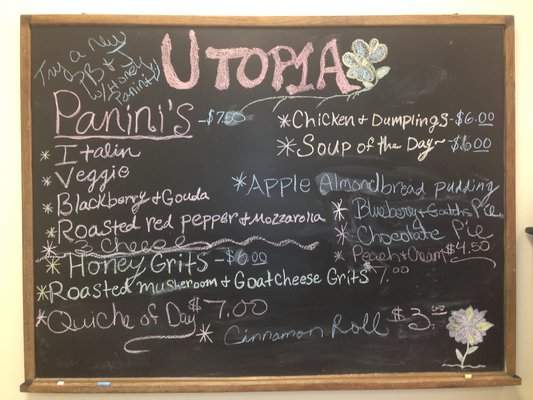 Try a new
PB & J
w/Honey
Panini
UTOPIA
Panini's -$7.50
* Italin
* Veggie
* Blackberry & Gouda
* Roasted red pepper & Mozzarolla
* 3 Cheese
* Honey Grits - $6.00
* Roasted musheroom & Goat Cheese Grits $7.00
* Quiche of Day $7.00
* Chicken & Dumplings - $6.00
* Soup of the Day ~ $6.00
* Apple Almond bread pudding
* Blueberry & Pie
* Chocolate Pie
* Peach & Cream $4.50
* Cinnamon Roll $3.00